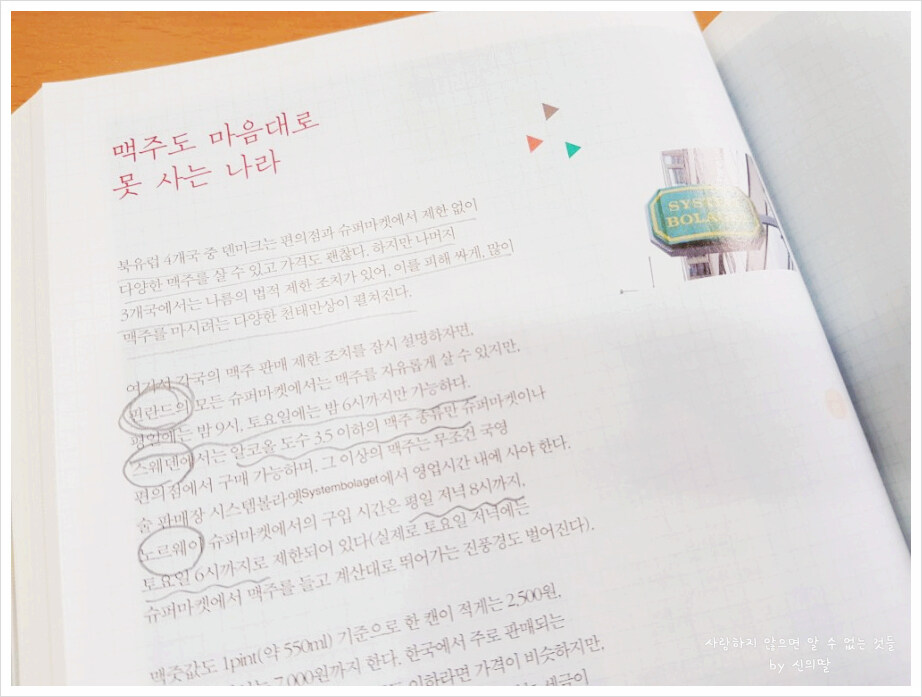 맥주도 마음대로
못 사는 나라
SYST
BOLA
북유럽 4개국 중 덴마크는 편의점과 슈퍼마켓에서 제한 없이
다양한 맥주를 살 수 있고 가격도 괜찮다. 하지만 나머지
3개국에서는 나름의 법적 제한 조치가 있어, 이를 피해 싸게, 많이
맥주를 마시려는 다양한 천태만상이 펼쳐진다.
여기서 각국의 맥주 판매 제한 조치를 잠시 설명하자면,
핀란드의 모든 슈퍼마켓에서는 맥주를 자유롭게 살 수 있지만,
평일에는 밤 9시, 토요일에는 밤 6시까지만 가능하다.
스웨덴에서는 알코올 도수 3.5 이하의 맥주 종류만 슈퍼마켓이나
편의점에서 구매 가능하며, 그 이상의 맥주는 무조건 국영
술 판매장 시스템볼라옛Systembolaget에서 영업시간 내에 사야 한다.
노르웨이 슈퍼마켓에서의 구입 시간은 평일 저녁 8시까지,
토요일 6시까지로 제한되어 있다(실제로 토요일 저녁에는
슈퍼마켓에서 맥주를 들고 계산대로 뛰어가는 진풍경도 벌어진다).
맥줏값도 1pint(약 550ml) 기준으로 한 캔이 적게는 2,500원,
7,000원까지 한다. 한국에서 주로 판매되는
이하라면 가격이 비슷하지만,
세금이
사랑하지 않으면 알 수 없는 것들
by 신의딸